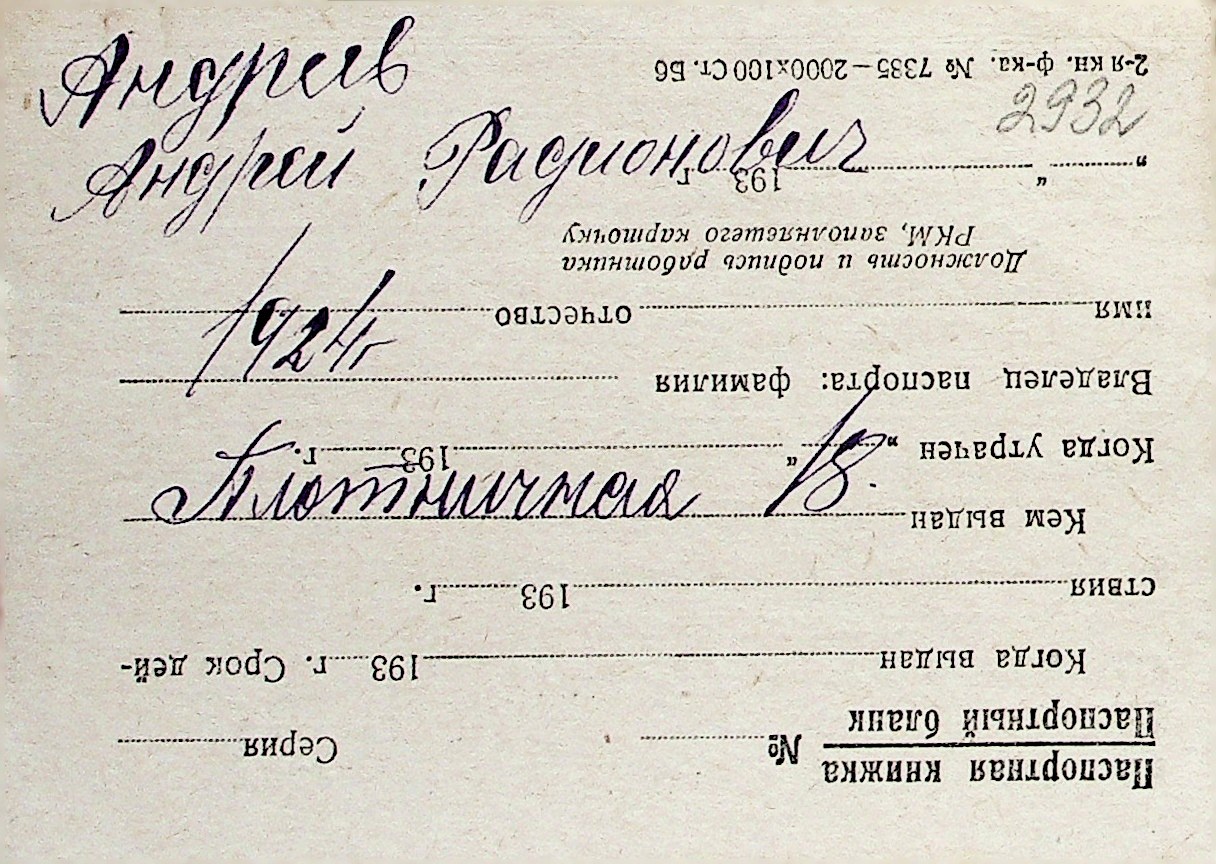 Андреев
Андрей Радионович
1924 г
Плотничная 18.
2932
Паспортная книжка
Паспортный бланк
№ Серия
Когда выдан 193 г. Срок дей-
ствия 193 г.
Кем выдан
Когда утрачен „ “ 193 г.
Владелец паспорта: фамилия
имя отчество
Должность и подпись работника
РКМ, заполняешего карточку
„ “ 193 г
2-я кн. ф-ка. № 7335—2000х100 Ст. Б6